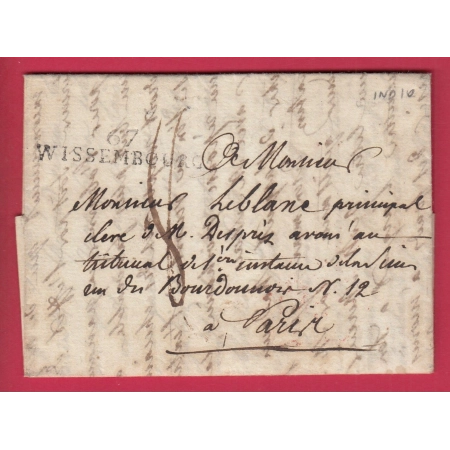 INDIE
67
WISSEMBOURG
A Monsieur
Monsieur Leblanc principal
clerc de M. Després avoué au
tribunal de 1ère instance de la Seine
rue des Bourdonnois N. 12
à Paris